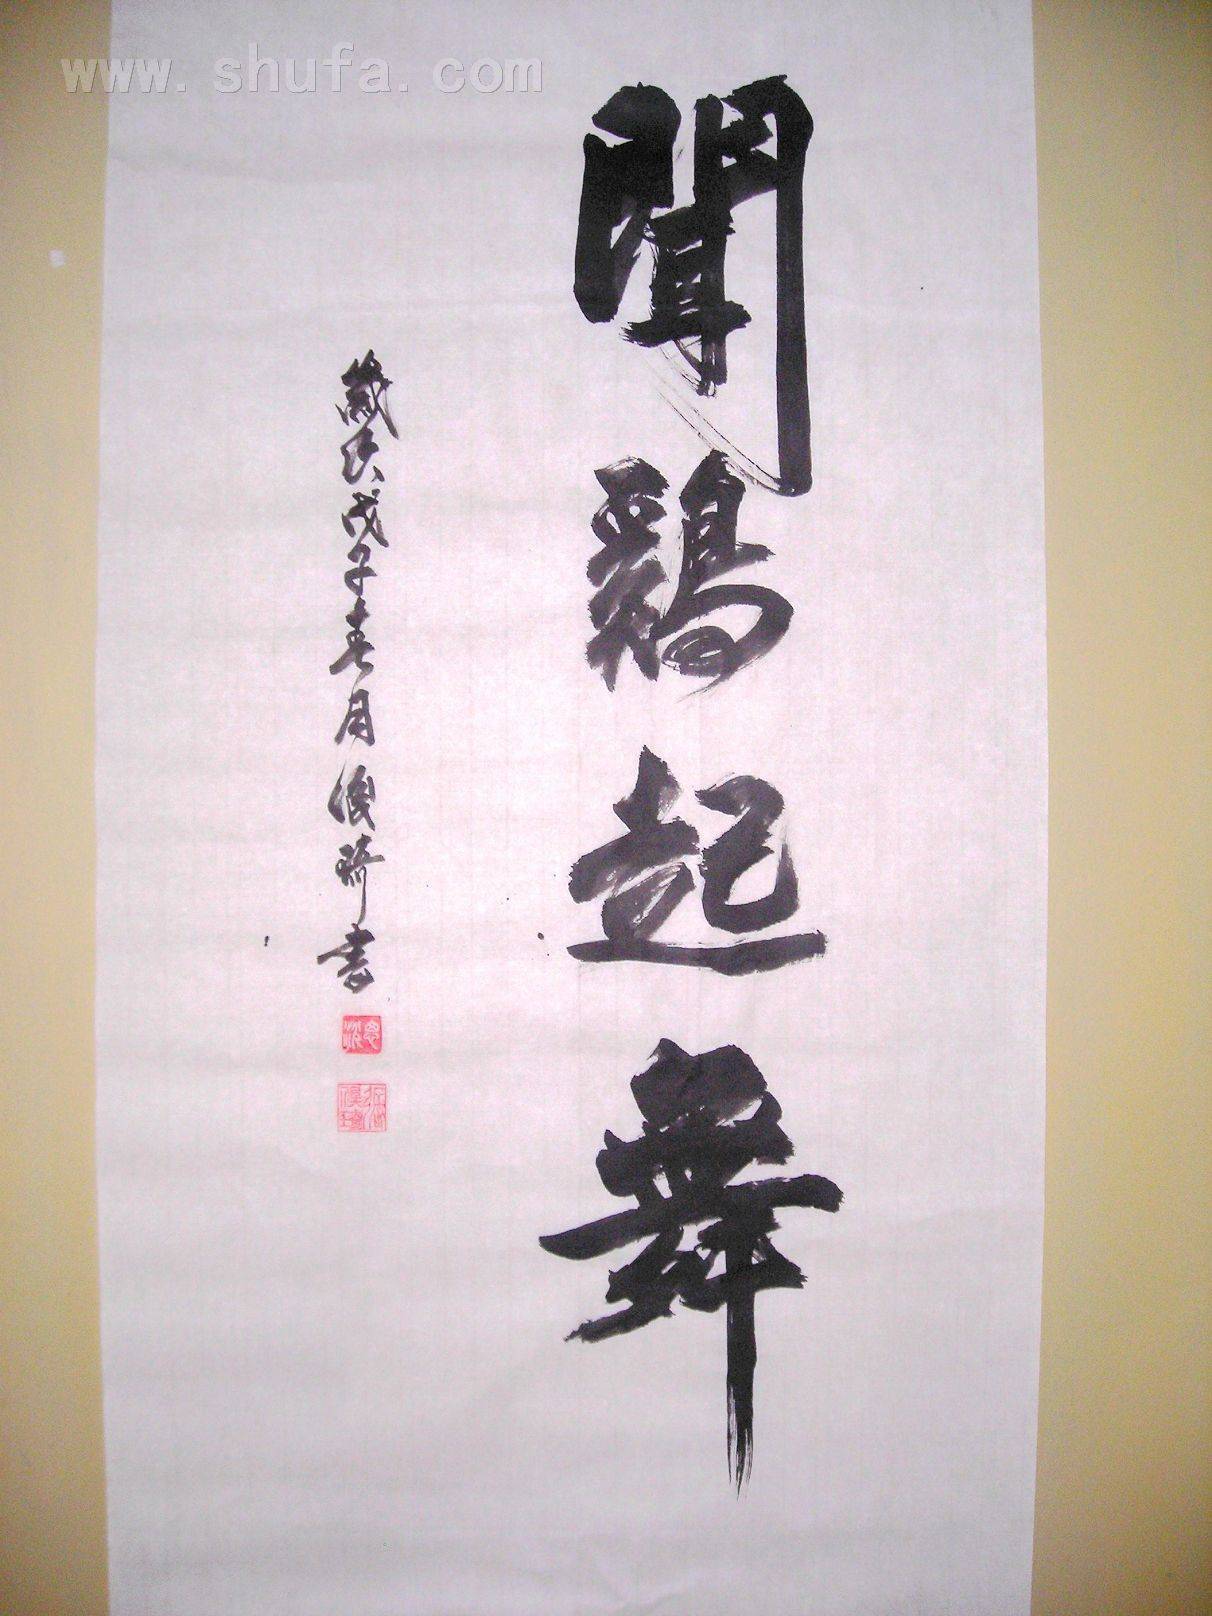 www.shufa.com
聞鷄起舞
歲次戊子春月俊琦書